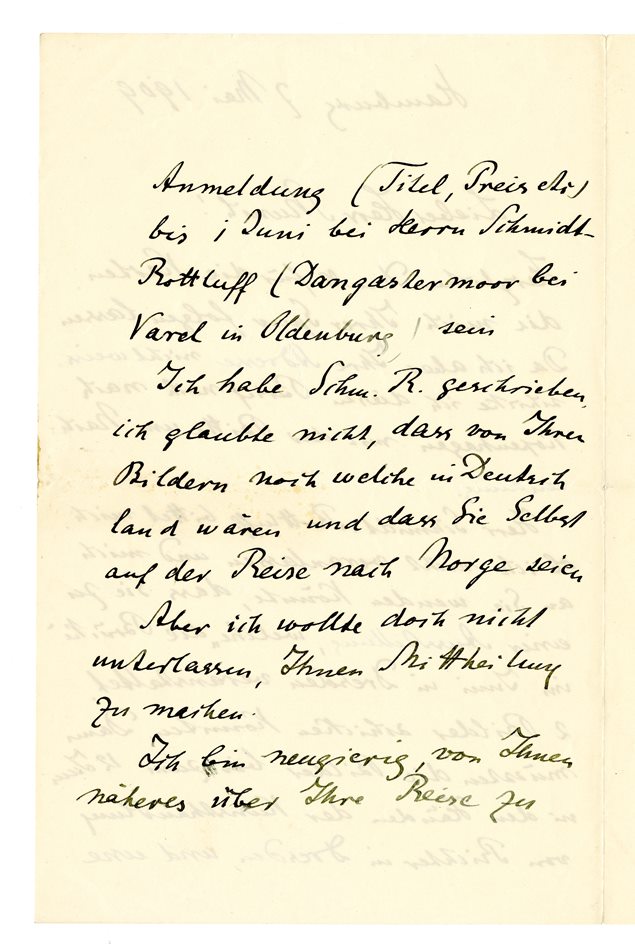 Anmeldung (Titel, Preis etc)
bis 1 Juni bei Herrn Schmidt-
Rottluff (Dangastermoor bei
Varel in Oldenburg) sein
Ich habe Schm. R. geschrieben,
ich glaubte nicht, dass von Ihren
Bildern noch welche in Deutsch
land wären und dass Sie Selbst
auf der Reise nach Norge seien
Aber ich wollte doch nicht
unterlassen, Ihnen Mittheilung
zu machen.
Ich bin neugierig, von Ihnen
näheres über Ihre Reise zu